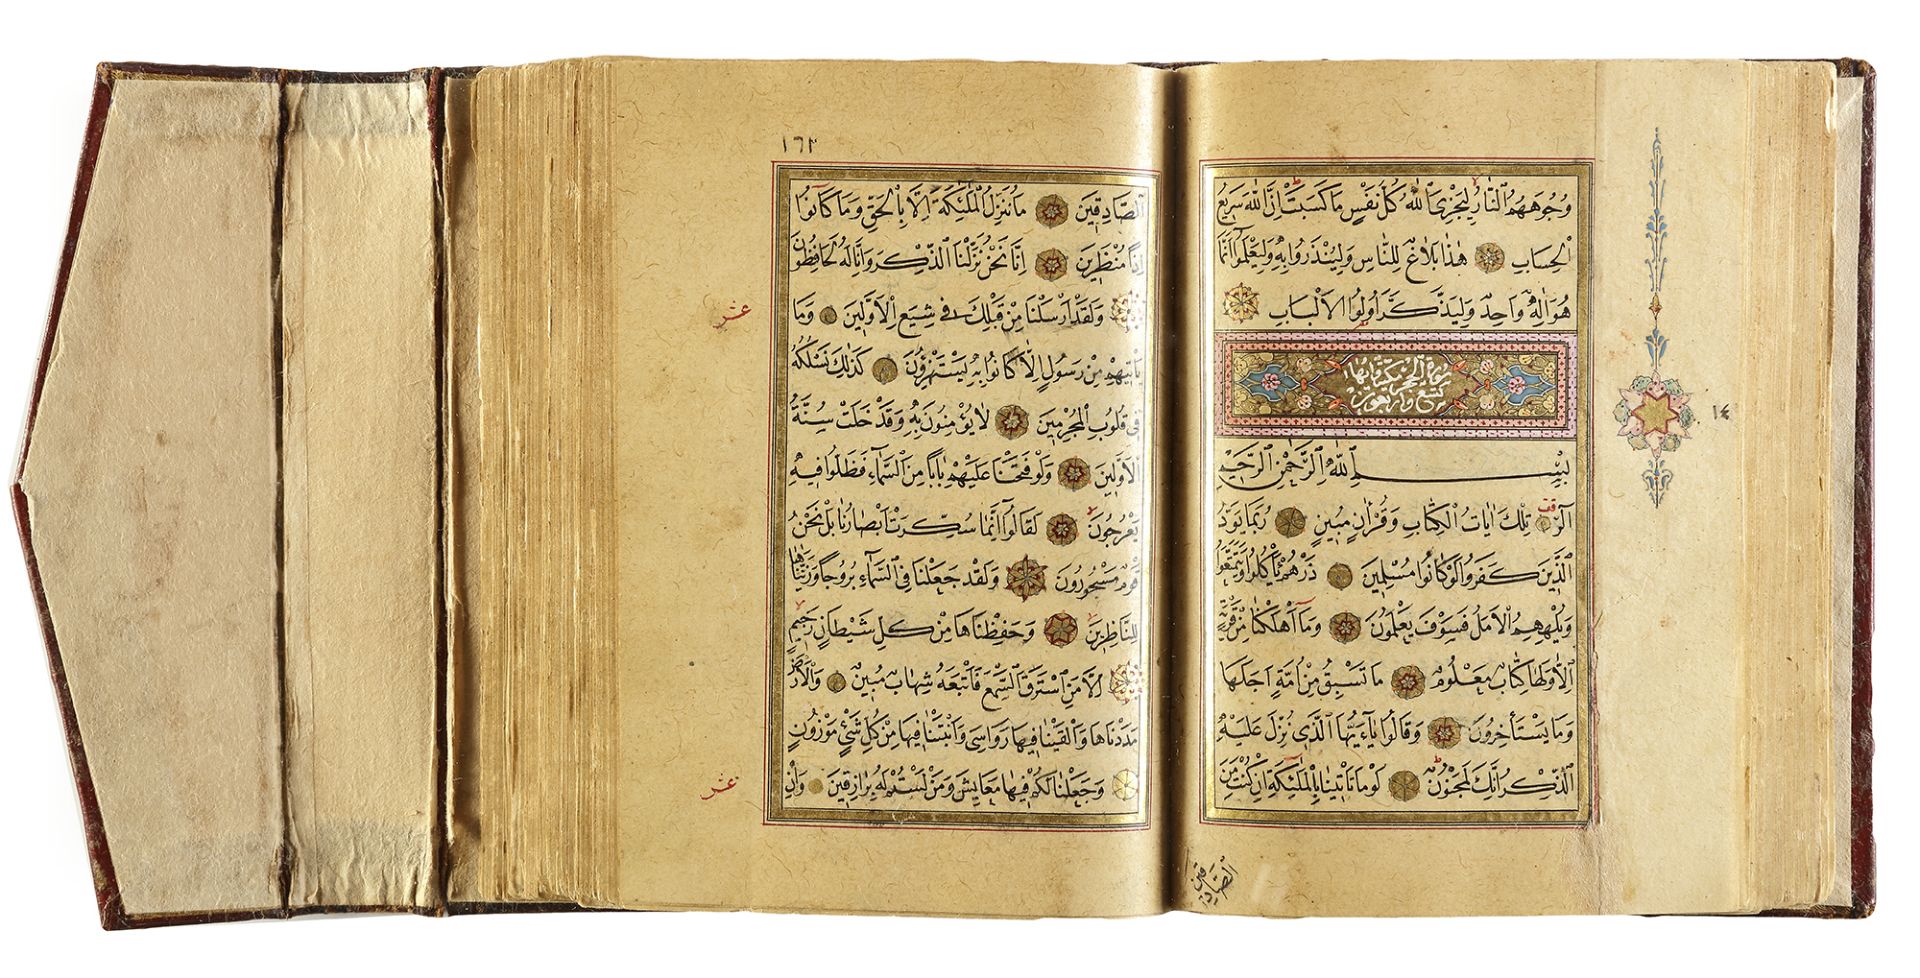 وُجُوهَهُمُ النَّارُ لِيَجْزِىَ اللّٰهُ كُلَّ نَفْسٍ مَا كَسَبَتْ اِنَّ اللّٰهَ سَرِيعُ
الْحِسَابِ هٰذَا بَلَاغٌ لِلنَّاسِ وَلِيُنْذَرُوا بِهِ وَلِيَعْلَمُوا اَنَّمَا
هُوَ اِلٰهٌ وَاحِدٌ وَلِيَذَّكَّرَ اُولُوا الْاَلْبَابِ
سورة الحجر مكية وآيها
تسع وأربعون
١٤
بِسْمِ اللّٰهِ الرَّحْمٰنِ الرَّحِيمِ
الٓرٰ تِلْكَ اٰيَاتُ الْكِتَابِ وَقُرْاٰنٍ مُبِينٍ رُبَمَا يَوَدُّ
الَّذِينَ كَفَرُوا لَوْ كَانُوا مُسْلِمِينَ ذَرْهُمْ يَأْكُلُوا وَيَتَمَتَّعُوا
وَيُلْهِهِمُ الْاَمَلُ فَسَوْفَ يَعْلَمُونَ وَمَا اَهْلَكْنَا مِنْ قَرْيَةٍ
اِلَّا وَلَهَا كِتَابٌ مَعْلُومٌ مَا تَسْبِقُ مِنْ اُمَّةٍ اَجَلَهَا
وَمَا يَسْتَأْخِرُونَ وَقَالُوا يَٓا اَيُّهَا الَّذِى نُزِّلَ عَلَيْهِ
الذِّكْرُ اِنَّكَ لَمَجْنُونٌ لَوْ مَا تَأْتِينَا بِالْمَلٰٓئِكَةِ اِنْ كُنْتَ مِنَ
الصَّادِقِينَ
١٦٢
الصَّادِقِينَ مَا نُنَزِّلُ الْمَلٰٓئِكَةَ اِلَّا بِالْحَقِّ وَمَا كَانُوا
اِذًا مُنْظَرِينَ اِنَّا نَحْنُ نَزَّلْنَا الذِّكْرَ وَاِنَّا لَهُ لَحَافِظُونَ
وَلَقَدْ اَرْسَلْنَا مِنْ قَبْلِكَ فِى شِيَعِ الْاَوَّلِينَ وَمَا
عشر
يَأْتِيهِمْ مِنْ رَسُولٍ اِلَّا كَانُوا بِهِ يَسْتَهْزِؤُنَ كَذٰلِكَ نَسْلُكُهُ
فِى قُلُوبِ الْمُجْرِمِينَ لَا يُؤْمِنُونَ بِهِ وَقَدْ خَلَتْ سُنَّةُ
الْاَوَّلِينَ وَلَوْ فَتَحْنَا عَلَيْهِمْ بَابًا مِنَ السَّمَٓاءِ فَظَلُّوا فِيهِ
يَعْرُجُونَ لَقَالُوا اِنَّمَا سُكِّرَتْ اَبْصَارُنَا بَلْ نَحْنُ
قَوْمٌ مَسْحُورُونَ وَلَقَدْ جَعَلْنَا فِى السَّمَٓاءِ بُرُوجًا وَزَيَّنَّاهَا
لِلنَّاظِرِينَ وَحَفِظْنَاهَا مِنْ كُلِّ شَيْطَانٍ رَجِيمٍ
اِلَّا مَنِ اسْتَرَقَ السَّمْعَ فَاَتْبَعَهُ شِهَابٌ مُبِينٌ وَالْاَرْضَ
مَدَدْنَاهَا وَاَلْقَيْنَا فِيهَا رَوَاسِىَ وَاَنْبَتْنَا فِيهَا مِنْ كُلِّ شَىْءٍ مَوْزُونٍ
وَجَعَلْنَا لَكُمْ فِيهَا مَعَايِشَ وَمَنْ لَسْتُمْ لَهُ بِرَازِقِينَ وَاِنْ
عشر